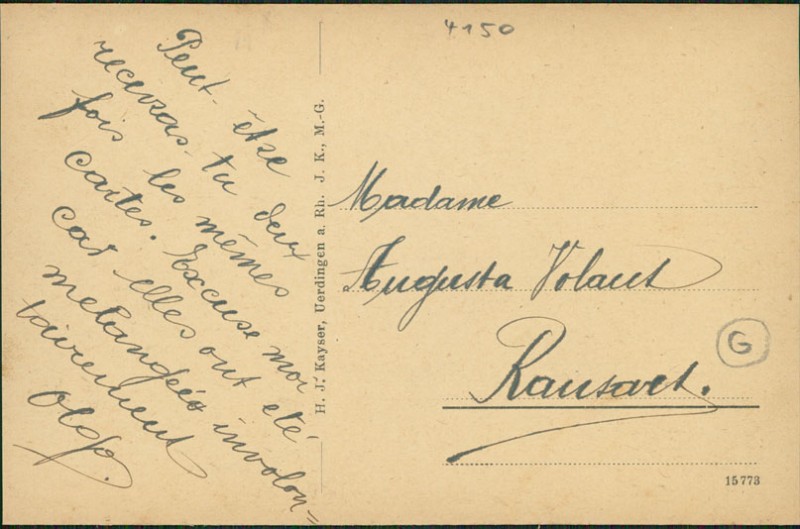 4150
Peut-être
recevras-tu deux
fois les mêmes
cartes. Excuse moi
car elles ont été
melangées involon=
tairement
Olga.
H. J. Kayser, Uerdingen a. Rh. J. K., M.-G.
Madame
Augusta Volant
Ransart.
G
15773